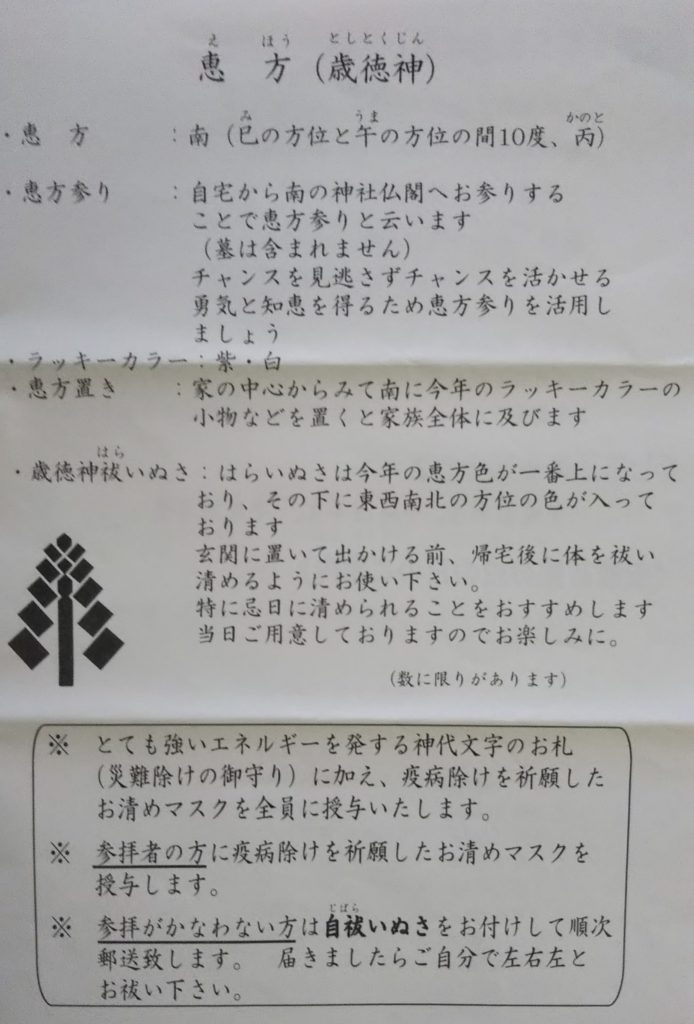 恵　方（歳徳神）
え　ほう　としとくじん
・恵　方　：南（巳の方位と午の方位の間10度、丙）
み　うま　かのと
・恵方参り　：自宅から南の神社仏閣へお参りする
ことで恵方参りと云います
（墓は含まれません）
チャンスを見逃さずチャンスを活かせる
勇気と知恵を得るため恵方参りを活用し
ましょう
・ラッキーカラー：紫・白
・恵方置き　：家の中心からみて南に今年のラッキーカラーの
小物などを置くと家族全体に及びます
・歳徳神祓いぬさ：はらいぬさは今年の恵方色が一番上になって
はら
おり、その下に東西南北の方位の色が入って
おります
玄関に置いて出かける前、帰宅後に体を祓い
清めるようにお使い下さい。
特に忌日に清められることをおすすめします
当日ご用意しておりますのでお楽しみに。
（数に限りがあります）
※　とても強いエネルギーを発する神代文字のお札
（災難除けの御守り）に加え、疫病除けを祈願した
お清めマスクを全員に授与いたします。
※　参拝者の方に疫病除けを祈願したお清めマスクを
授与します。
※　参拝がかなわない方は自祓いぬさをお付けして順次
じばら
郵送致します。　届きましたらご自分で左右左と
お祓い下さい。